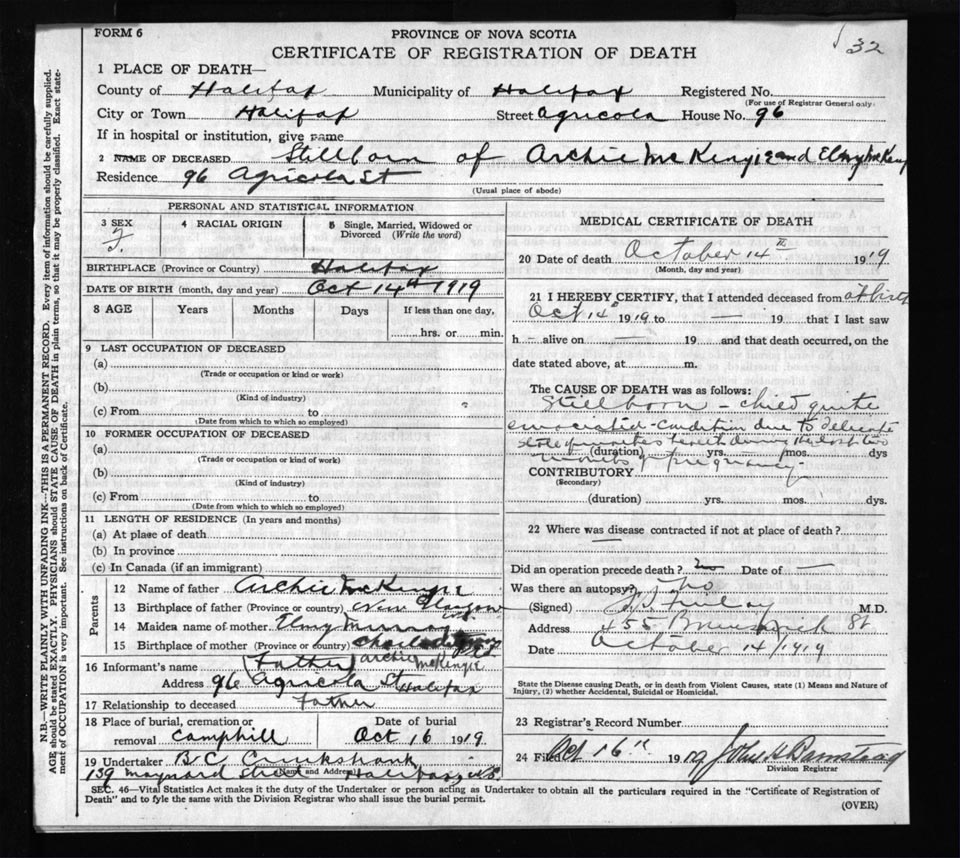 FORM 6
PROVINCE OF NOVA SCOTIA
32
CERTIFICATE OF REGISTRATION OF DEATH
1 PLACE OF DEATH—
County of Halifax Municipality of Halifax Registered No.
(For use of Registrar General only)
City or Town Halifax Street Agricola House No. 96
If in hospital or institution, give name
2 NAME OF DECEASED Stillborn of Archie McKenzie and
Residence 96 Agricola St
(Usual place of abode)
PERSONAL AND STATISTICAL INFORMATION
3 SEX 4 RACIAL ORIGIN 5 Single, Married, Widowed or
Divorced (Write the word)
F.
BIRTHPLACE (Province or Country) Halifax
DATE OF BIRTH (month, day and year) Oct 14th 1919
8 AGE Years Months Days If less than one day,
hrs. or min.
9 LAST OCCUPATION OF DECEASED
(a)
(Trade or occupation or kind or work)
(b)
(Kind of industry)
(c) From to
(Date from which to which so employed)
10 FORMER OCCUPATION OF DECEASED
(a)
(Trade or occupation or kind of work)
(b)
(Kind of industry)
(c) From to
(Date from which to which so employed)
11 LENGTH OF RESIDENCE (In years and months)
(a) At place of death
(b) In province
(c) In Canada (if an immigrant)
Parents
12 Name of father Archie McKenzie
13 Birthplace of father (Province or country) New Glasgow
14 Maiden name of mother Murray
15 Birthplace of mother (Province or country)
16 Informant's name (Father) Archie McKenzie
Address 96 Agricola St Halifax
17 Relationship to deceased Father
18 Place of burial, cremation or Date of burial
removal Camphill Oct 16 1919.
19 Undertaker
(Name and Address)
139 Maynard Street Halifax N.S.
MEDICAL CERTIFICATE OF DEATH
20 Date of death October 14 1919
(Month, day and year)
21 I HEREBY CERTIFY, that I attended deceased from at birth
Oct 14 1919 to — 19 that I last saw
h — alive on — 19 and that death occurred, on the
date stated above, at m.
The CAUSE OF DEATH was as follows:
Stillborn – child quite
emaciated – condition due to delicate
state of mother's health during the last two
(duration) yrs. mos. dys
months of pregnancy.
CONTRIBUTORY
(Secondary)
(duration) yrs. mos. dys.
22 Where was disease contracted if not at place of death?
—
Did an operation precede death? no Date of —
Was there an autopsy? no
(Signed) Finlay M.D.
Address 455 Brunswick St
Date October 14/1919
State the Disease causing Death, or in death from Violent Causes, state (1) Means and Nature of
Injury, (2) whether Accidental, Suicidal or Homicidal.
23 Registrar's Record Number
24 Filed Oct 16th 1919 John
Division Registrar
SEC. 46—Vital Statistics Act makes it the duty of the Undertaker or person acting as Undertaker to obtain all the particulars required in the "Certificate of Registration of
Death" and to fyle the same with the Division Registrar who shall issue the burial permit.
(OVER)
N.B.—WRITE PLAINLY WITH UNFADING INK—THIS IS A PERMANENT RECORD. Every item of information should be carefully supplied.
AGE should be stated EXACTLY. PHYSICIANS should STATE CAUSE OF DEATH in plain terms, so that it may be properly classified. Exact state-
ment of OCCUPATION is very important. See instructions on back of Certificate.